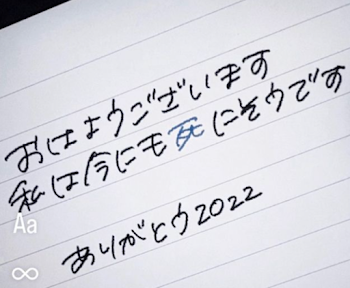 おはようございます
私は今にも死にそうです
ありがとう2022
Aa
∞